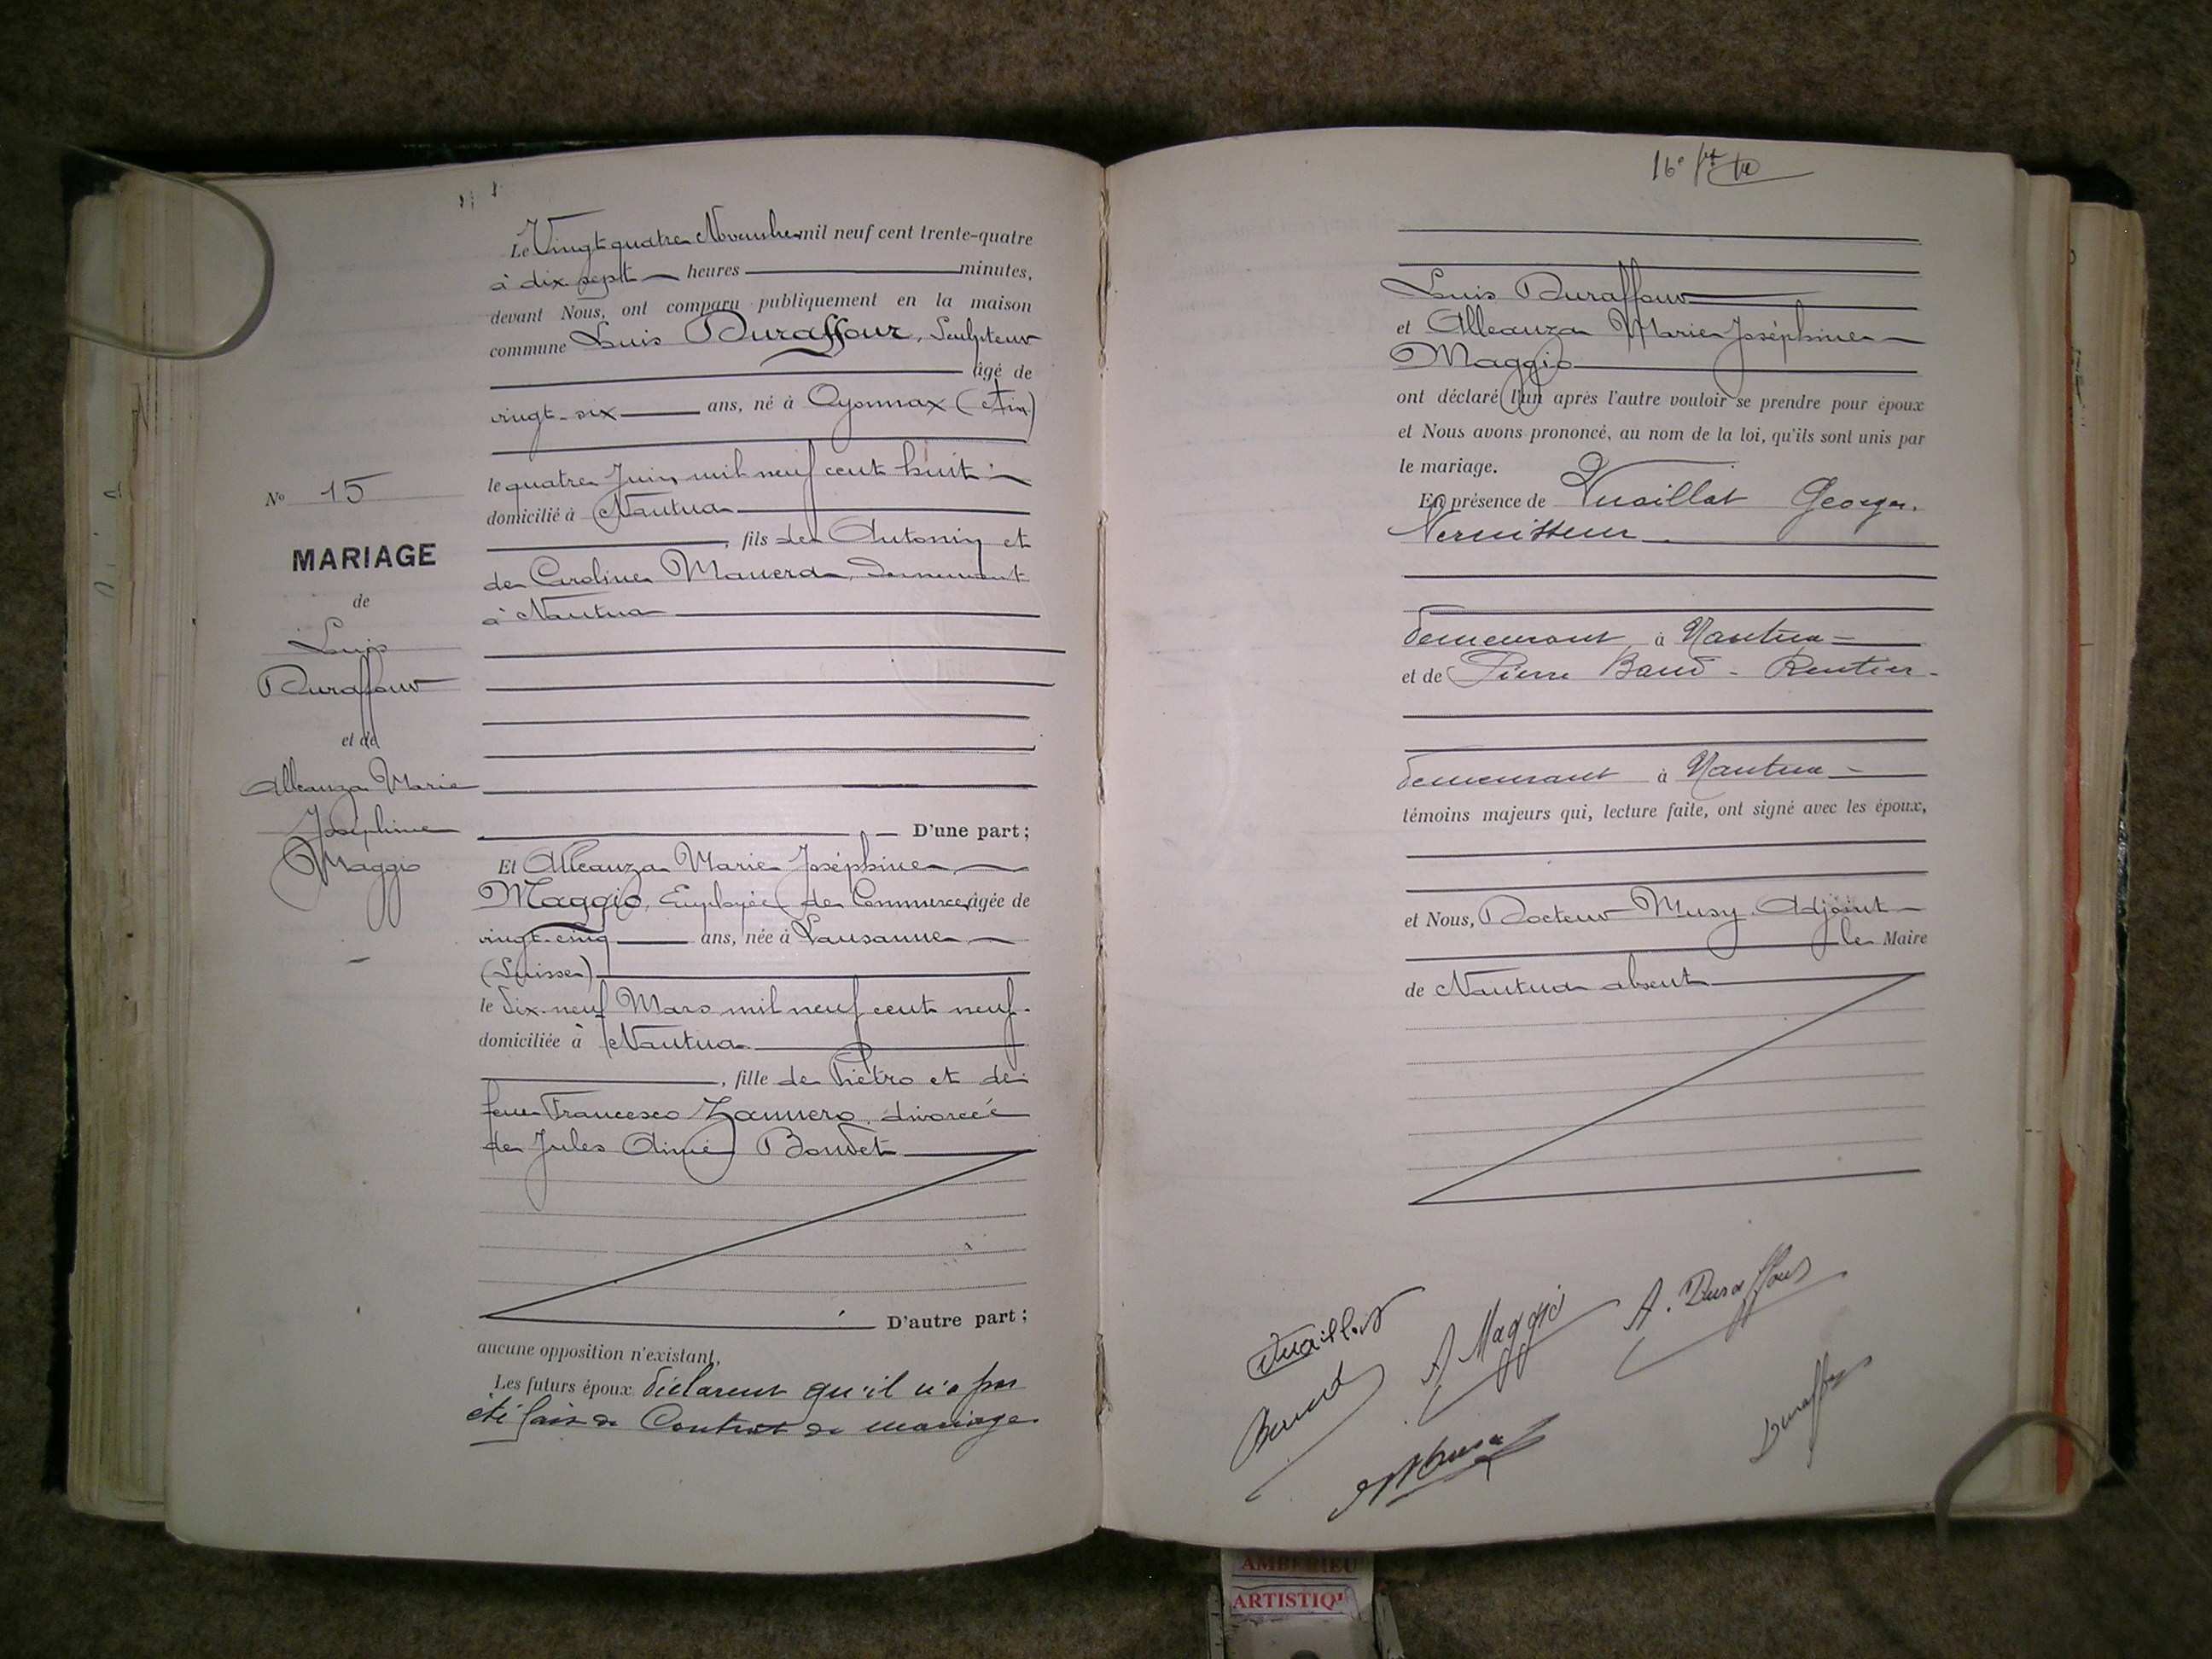 Le Vingt quatre Novembre mil neuf cent trente-quatre
à dix sept heures minutes,
devant Nous, ont comparu publiquement en la maison
commune Louis Duraffour, Sculpteur
âgé de
vingt-six ans, né à Oyonnax (Ain)
le quatre Juin mil neuf cent huit
domicilié à Nantua
, fils de Antonin et
de Caroline demeurant
à Nantua
N° 15
MARIAGE
de
Louis
Duraffour
et de
Alleanza Marie
Joséphine
Maggio
D'une part;
Et Alleanza Marie Joséphine
Maggio, Employée de Commerce, âgée de
vingt-cinq ans, née à Lausanne
(Suisse)
le dix-neuf Mars mil neuf cent neuf
domiciliée à Nantua
, fille de Piétro et de
feue Francesco Zannero, divorcée
de Jules Aimé Bouvet
D'autre part;
aucune opposition n'existant,
Les futurs époux déclarent qu'il n'a pas
été fait de Contrat de mariage.
16e
Louis Duraffour
et Alleanza Marie Joséphine
Maggio
ont déclaré l'un après l'autre vouloir se prendre pour époux
et Nous avons prononcé, au nom de la loi, qu'ils sont unis par
le mariage.
En présence de Vuaillat Georges,
Vernisseur
demeurant à Nantua
et de Pierre Baud - Rentier -
demeurant à Nantua
témoins majeurs qui, lecture faite, ont signé avec les époux,
et Nous, Docteur Musy, Adjoint
le Maire
de Nantua absent
Vuaillat
A Maggio
A. Duraffour
Baud
Duraffour
AMBERIEU
ARTISTIQ